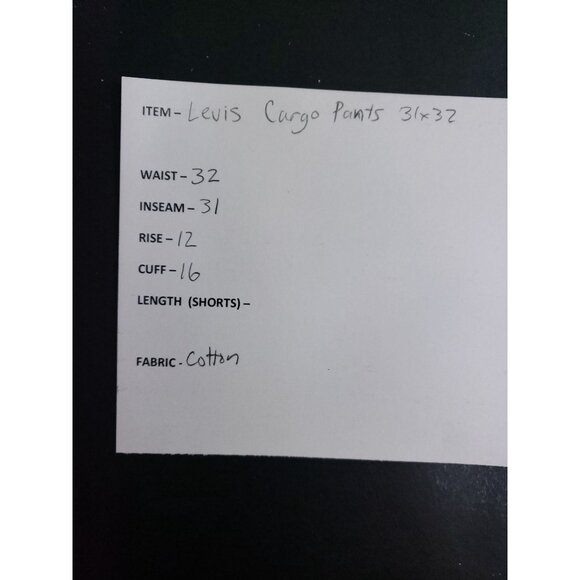 ITEM – Levis Cargo Pants 31x32
WAIST – 32
INSEAM – 31
RISE – 12
CUFF – 16
LENGTH (SHORTS) –
FABRIC - Cotton